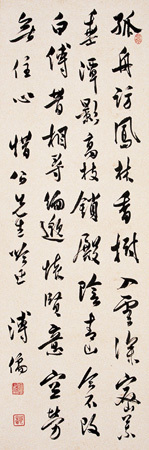 孤舟訪鳳林香樹入雲深密葉
垂潭影高枝鎖殿陰青山今不改
白傅昔相尋緬邈懷賢意空勞
無住心 惜公先生吟正 溥儒